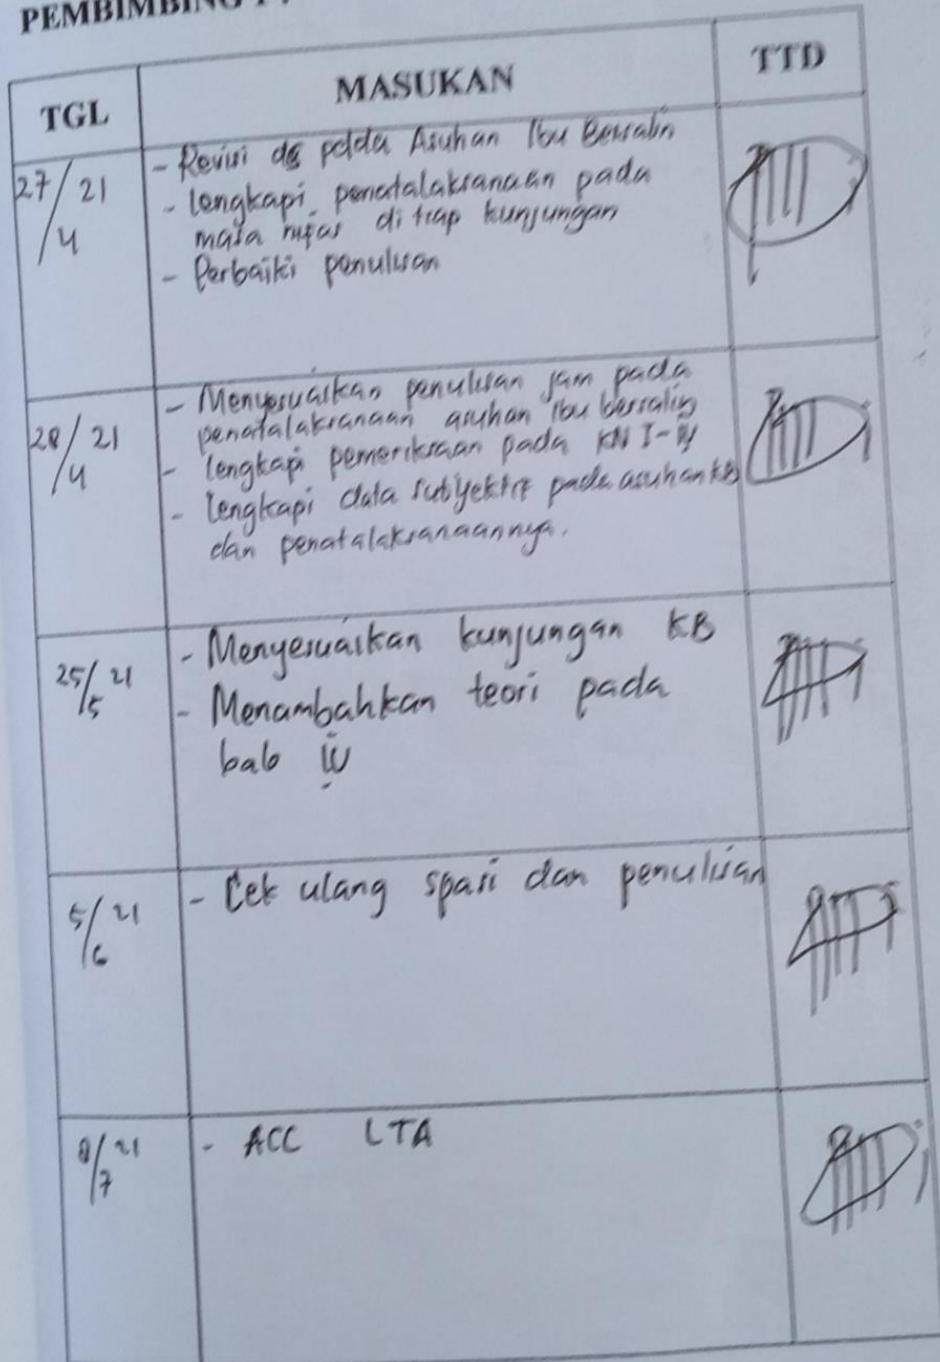 PEMBIMBING 1 :
TGL MASUKAN TTD
27/4 21
- Revisi ds pada Asuhan Ibu Bersalin
- lengkapi penatalaksanaan pada
masa nifas di tiap kunjungan
- Perbaiki penulisan
28/4 21
- Menyesuaikan penulisan jam pada
penatalaksanaan asuhan ibu bersalin
- lengkapi pemeriksaan pada KN I-IV
- lengkapi data subyektif pada asuhan KB
dan penatalaksanaannya.
25/5 21
- Menyesuaikan kunjungan KB
- Menambahkan teori pada
bab IV
5/6 21
- Cek ulang spasi dan penulisan
8/7 21
- ACC LTA